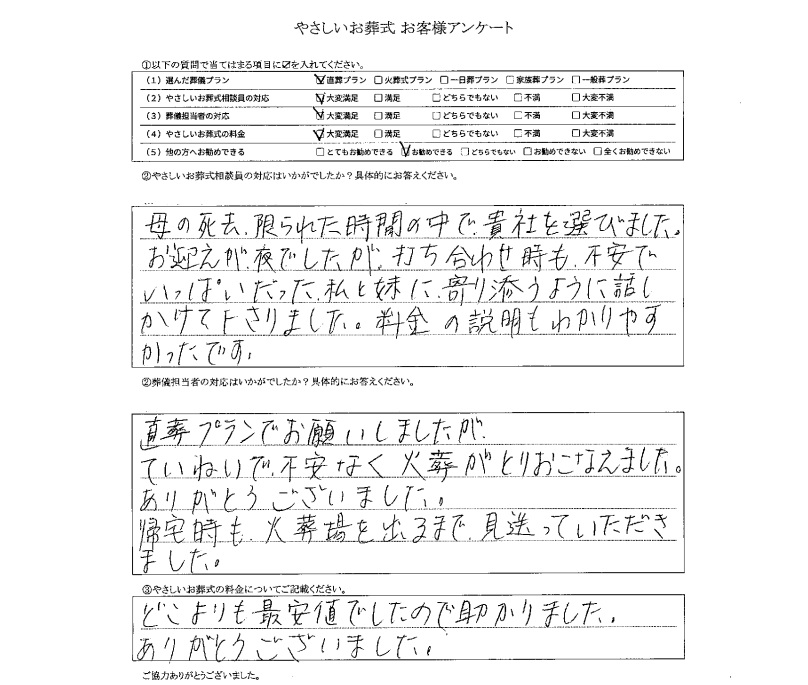 やさしいお葬式 お客様アンケート
①以下の質問で当てはまる項目に☑を入れてください。
(1) 選んだ葬儀プラン ☑直葬プラン □火葬式プラン □一日葬プラン □家族葬プラン □一般葬プラン
(2) やさしいお葬式相談員の対応 ☑大変満足 □満足 □どちらでもない □不満 □大変不満
(3) 葬儀担当者の対応 ☑大変満足 □満足 □どちらでもない □不満 □大変不満
(4) やさしいお葬式の料金 ☑大変満足 □満足 □どちらでもない □不満 □大変不満
(5) 他の方へお勧めできる □とてもお勧めできる ☑お勧めできる □どちらでもない □お勧めできない □全くお勧めできない
②やさしいお葬式相談員の対応はいかがでしたか？具体的にお答えください。
母の死去、限られた時間の中で、貴社を選びました。
お迎えが、夜でしたが、打ち合わせ時も、不安で
いっぱいだった、私と妹に、寄り添うように話し
かけて下さりました。料金の説明もわかりやす
かったです。
②葬儀担当者の対応はいかがでしたか？具体的にお答えください。
直葬プランでお願いしましたが、
ていねいで、不安なく火葬がとりおこなえました。
ありがとうございました。
帰宅時も、火葬場を出るまで、見送っていただき
ました。
③やさしいお葬式の料金についてご記載ください。
どこよりも最安値でしたので助かりました。
ありがとうございました。
ご協力ありがとうございました。